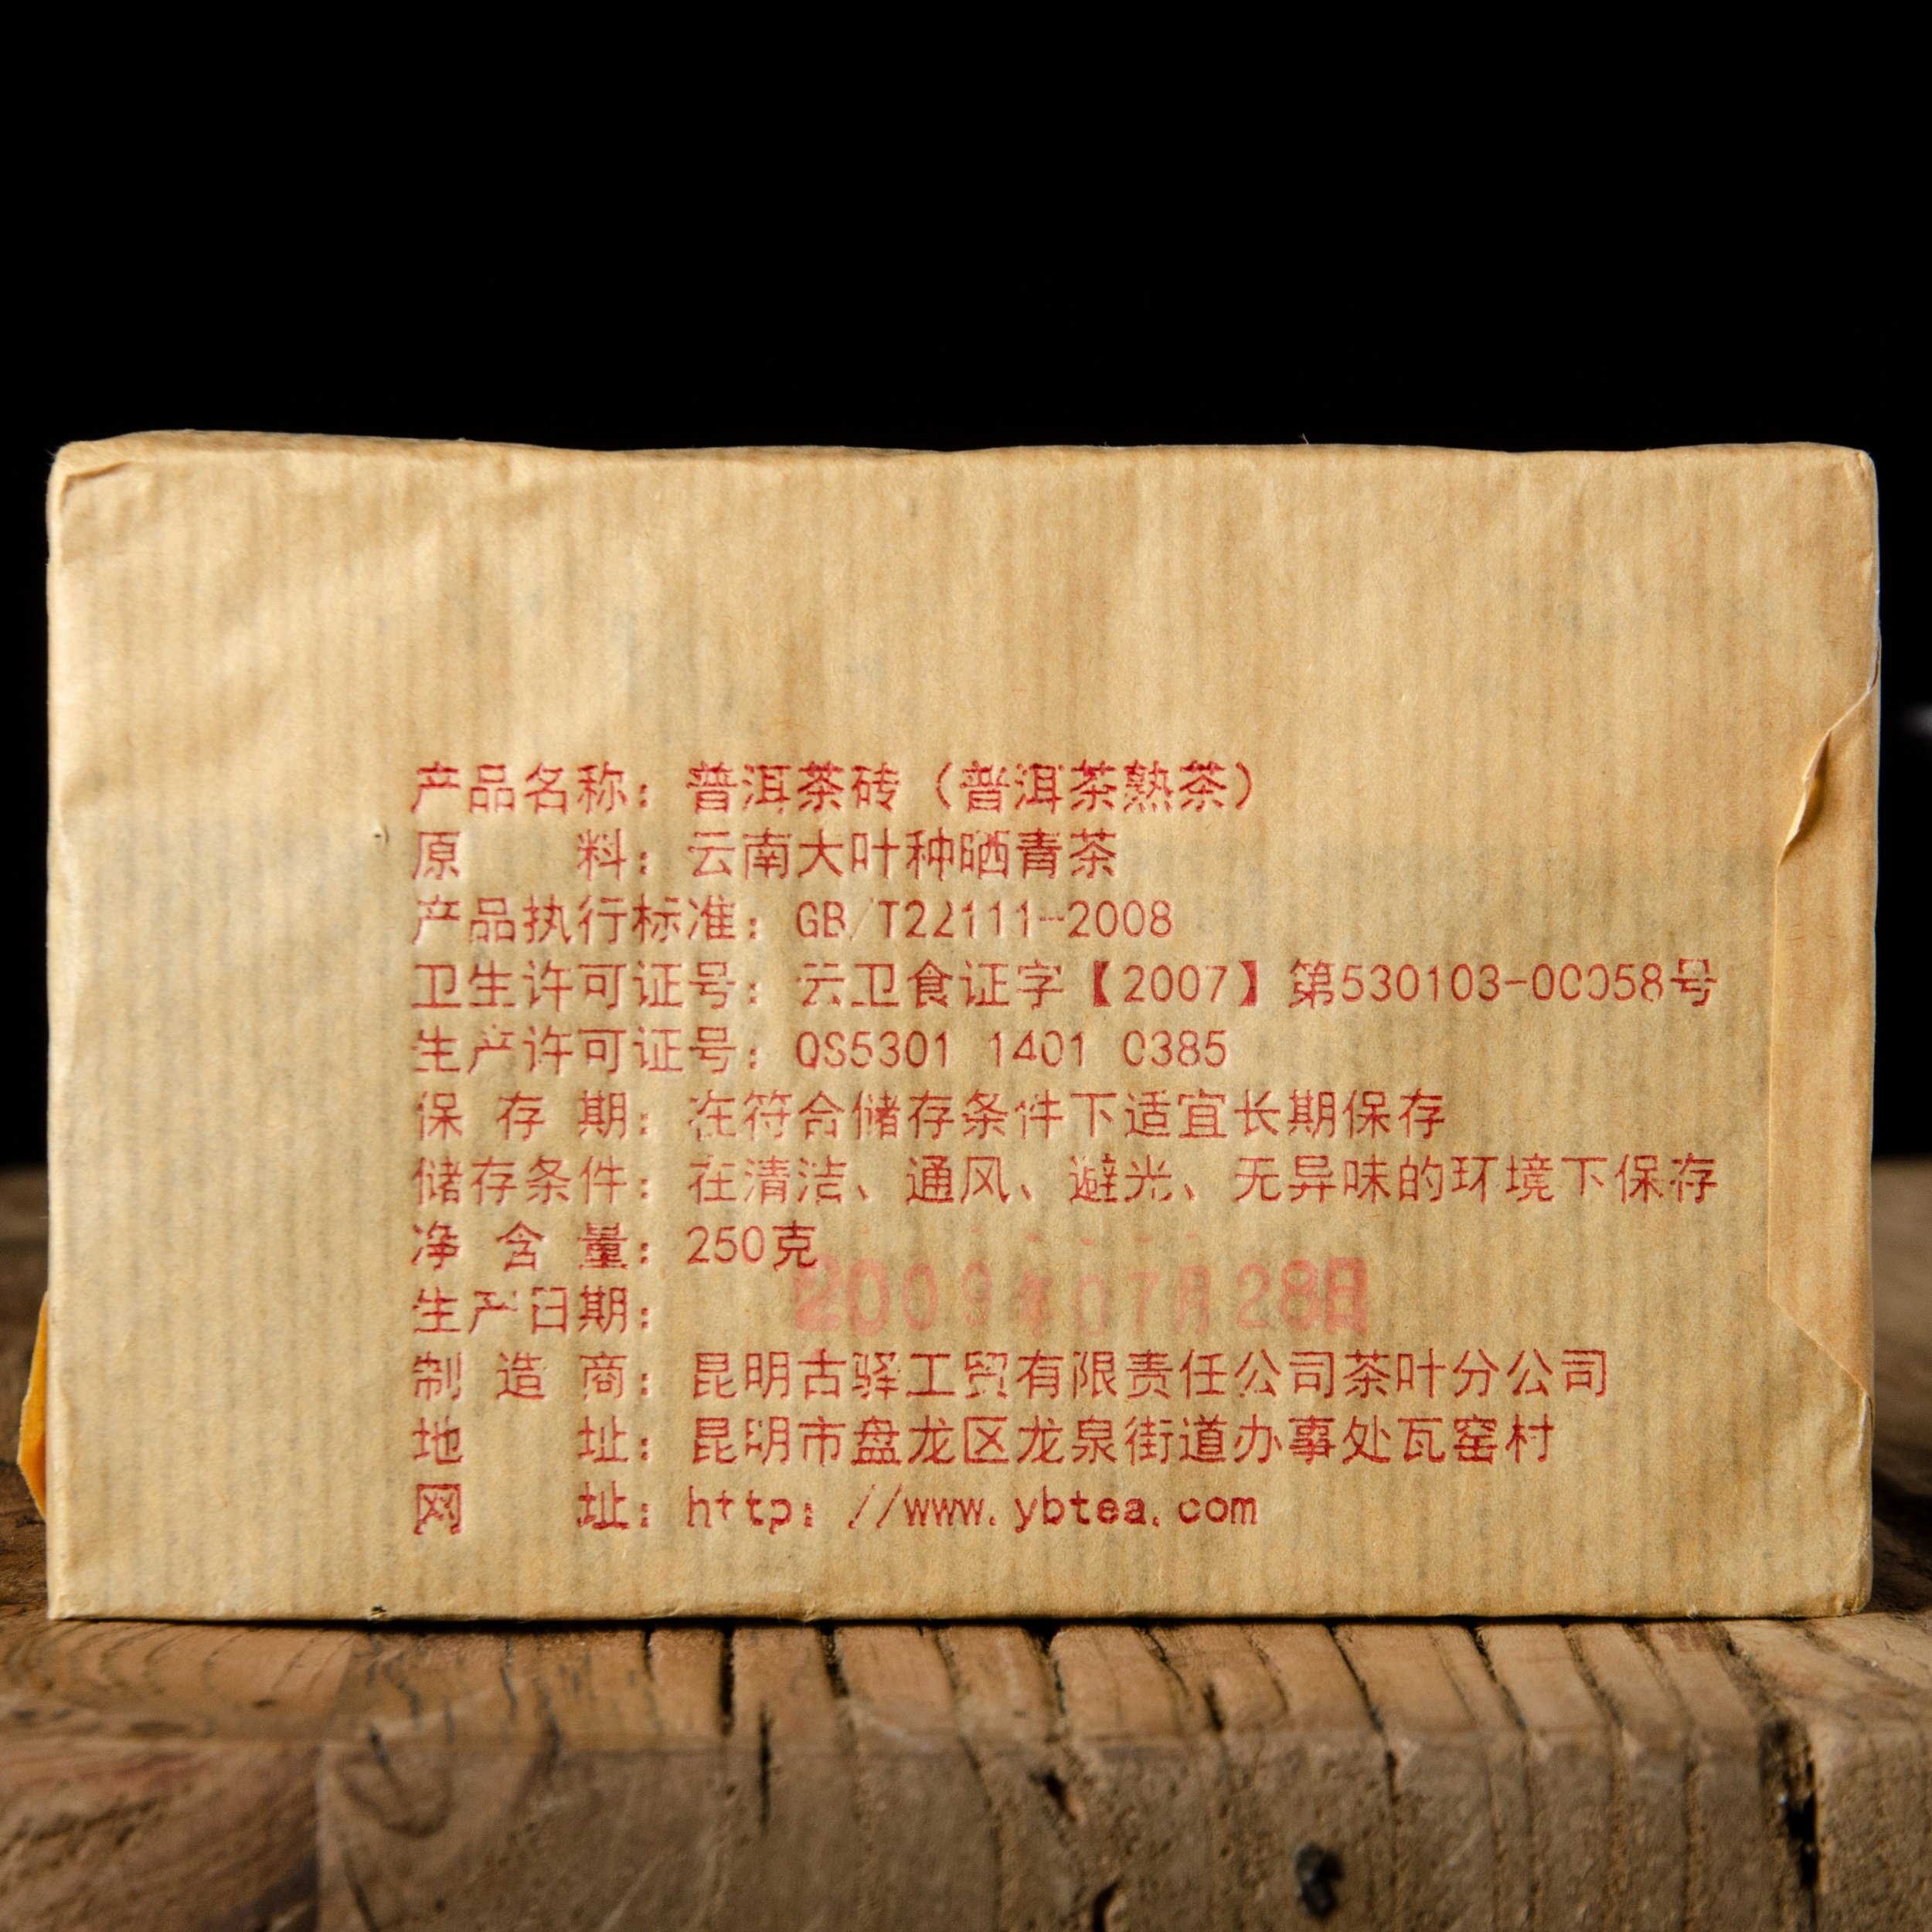 产品名称：普洱茶砖（普洱茶熟茶）
原 料：云南大叶种晒青茶
产品执行标准：GB/T22111-2008
卫生许可证号：云卫食证字【2007】第530103-00058号
生产许可证号：QS5301 1401 0385
保 存 期：在符合储存条件下适宜长期保存
储存条件：在清洁、通风、避光、无异味的环境下保存
净 含 量：250克
生产日期：2009年07月28日
制 造 商：昆明古驿工贸有限责任公司茶叶分公司
地 址：昆明市盘龙区龙泉街道办事处瓦窑村
网 址：http：//www.ybtea.com